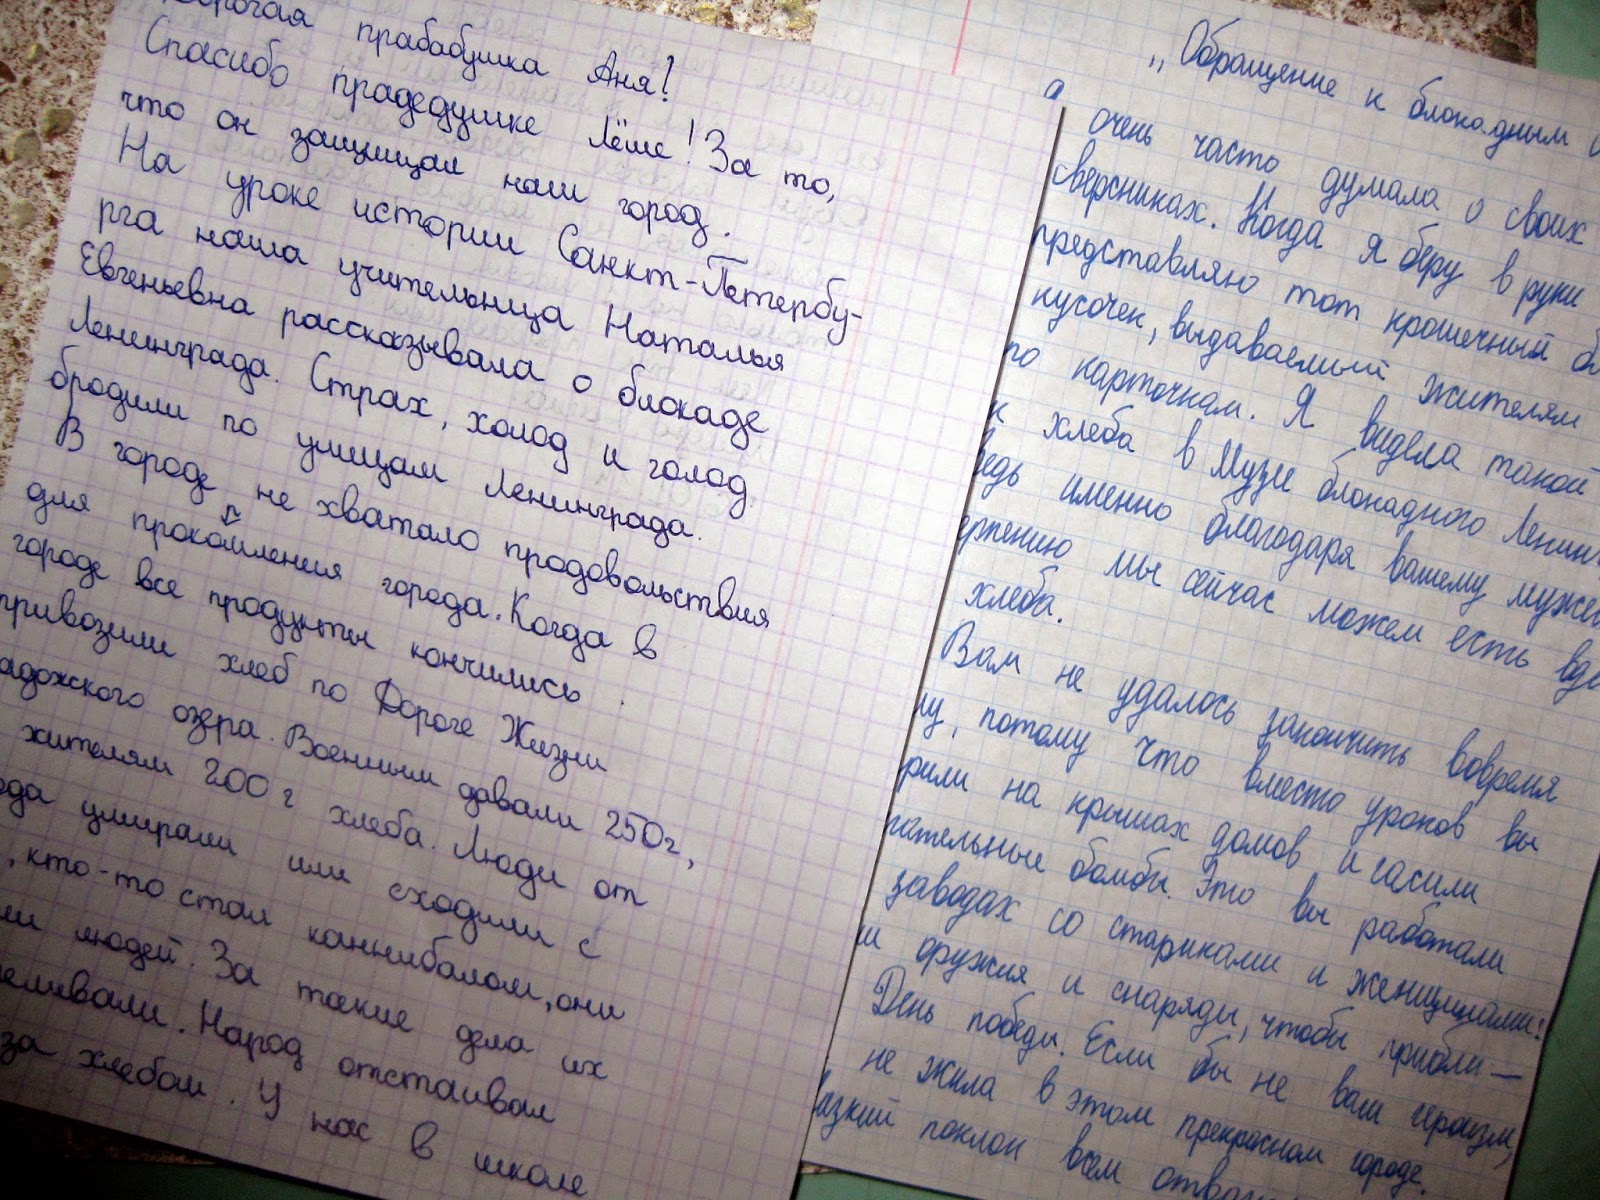 прабабушка Аня!
Спасибо прадедушке Лёше! За то,
что он защищал наш город.
На уроке истории Санкт-Петербу-
рга наша учительница Наталья
Евгеньевна рассказывала о блокаде
Ленинграда. Страх, холод и голод
бродили по улицам Ленинграда.
В городе не хватало продовольствия
для прокормления города. Когда в
городе все продукты кончились
привозили хлеб по Дороге Жизни
адожского озера. Военным давали 250г,
жителям 200г хлеба. Люди от
ода умирали или сходили с
, кто-то стал каннибалом, они
ли людей. За такие дела их
еливали. Народ отстаивал
за хлебом. У нас в школе
„Обращение к блокадным
очень часто думала о своих
сверсниках. Когда я беру в руки
представляю тот крошечный
кусочек, выдаваемый жителям
по карточкам. Я видела такой
к хлеба в Музе блокадного Ленин
ведь именно благодаря вашему муже
ерпению мы сейчас можем есть вдо
хлеба.
Вам не удалось закончить вовремя
лу, потому что вместо уроков вы
рили на крышах домов и гасили
гательные бомбы. Это вы работали
заводах со стариками и женщинами!
ли оружия и снаряды, чтобы прибли-
День победы. Если бы не ваш героизм,
не жила в этом прекрасном городе.
изкий поклон всем отва